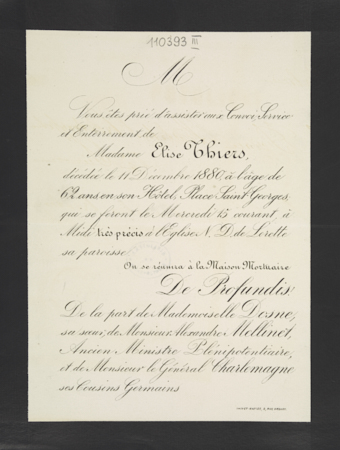 110393 III
M
Vous êtes prié d'assister aux Convoi, Service
et Enterrement de
Madame Elise Thiers,
décédée le 11 Décembre 1880, à l'âge de
62 ans en son Hôtel, Place Saint Georges,
qui se feront le Mercredi 15 courant, à
Midi très précis à l'Eglise N. D. de Lorette
sa paroisse.
On se réunira à la Maison Mortuaire
De Profundis!
De la part de Mademoiselle Dosne,
sa sœur, de Monsieur Alexandre Mellinet,
Ancien Ministre Plénipotentiaire,
et de Monsieur le Général Charlemagne
ses Cousins Germains